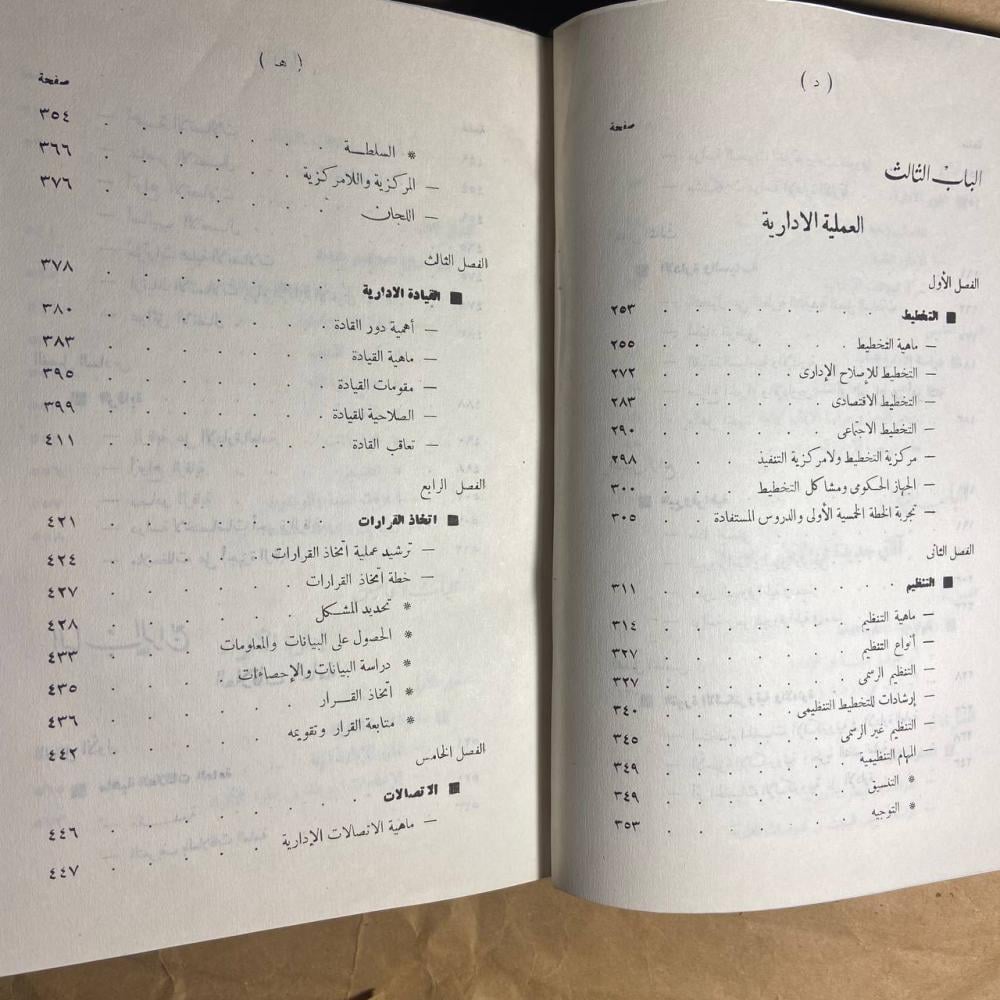 ( د )
صفحة
الباب الثالث
العملية الادارية
الفصل الأول
■ التخطيط . . . . . . ٢٥٣
— ماهية التخطيط . . . . . ٢٥٥
— التخطيط للإصلاح الإدارى . . . . ٢٧٢
— التخطيط الاقتصادى . . . . . ٢٨٣
— التخطيط الاجتماعى . . . . . ٢٩٠
— مركزية التخطيط ولامركزية التنفيذ . . . ٢٩٨
— الجهاز الحكومى ومشاكل التخطيط . . . ٣٠٠
— تجربة الخطة الخمسية الأولى والدروس المستفادة . . ٣٠٥
الفصل الثانى
■ التنظيم . . . . . . ٣١١
— ماهية التنظيم . . . . . ٣١٤
— أنواع التنظيم . . . . . ٣٢٧
— التنظيم الرسمى . . . . . ٣٢٧
— إرشادات للتخطيط التنظيمى . . . . ٣٤٠
— التنظيم غير الرسمى . . . . . ٣٤٥
— المهام التنظيمية . . . . . ٣٤٩
* التنسيق . . . . . ٣٤٩
* التوجيه . . . . . ٣٥٣
( هـ )
صفحة
* السلطـة . . . . . . ٣٥٤
— المركزية واللامركزية . . . . . ٣٦٦
— اللجان . . . . . . ٣٧٦
الفصل الثالث
■ القيادة الادارية . . . . . . ٣٧٨
— أهمية دور القادة . . . . . ٣٨٠
— ماهية القيادة . . . . . ٣٨٣
— مقومات القيادة . . . . . ٣٩٥
— الصلاحية للقيادة . . . . . ٣٩٩
— تعاقب القادة . . . . . ٤١١
الفصل الرابع
■ اتخاذ القرارات . . . . . ٤٢١
— ترشيد عملية اتخاذ القرارات . . . . ٤٢٤
— خطة اتخاذ القرارات . . . . . ٤٢٧
* تحديد المشكل . . . . . ٤٢٨
* الحصول على البيانات والمعلومات . . . ٤٣٣
* دراسة البيانات والإحصاءات . . . . ٤٣٥
* اتخاذ القـرار . . . . . ٤٣٦
* متابعة القرار وتقويمه . . . . ٤٤٢
الفصل الخامس
■ الاتصالات . . . . . . ٤٤٦
— ماهية الاتصالات الإدارية . . . . ٤٤٧